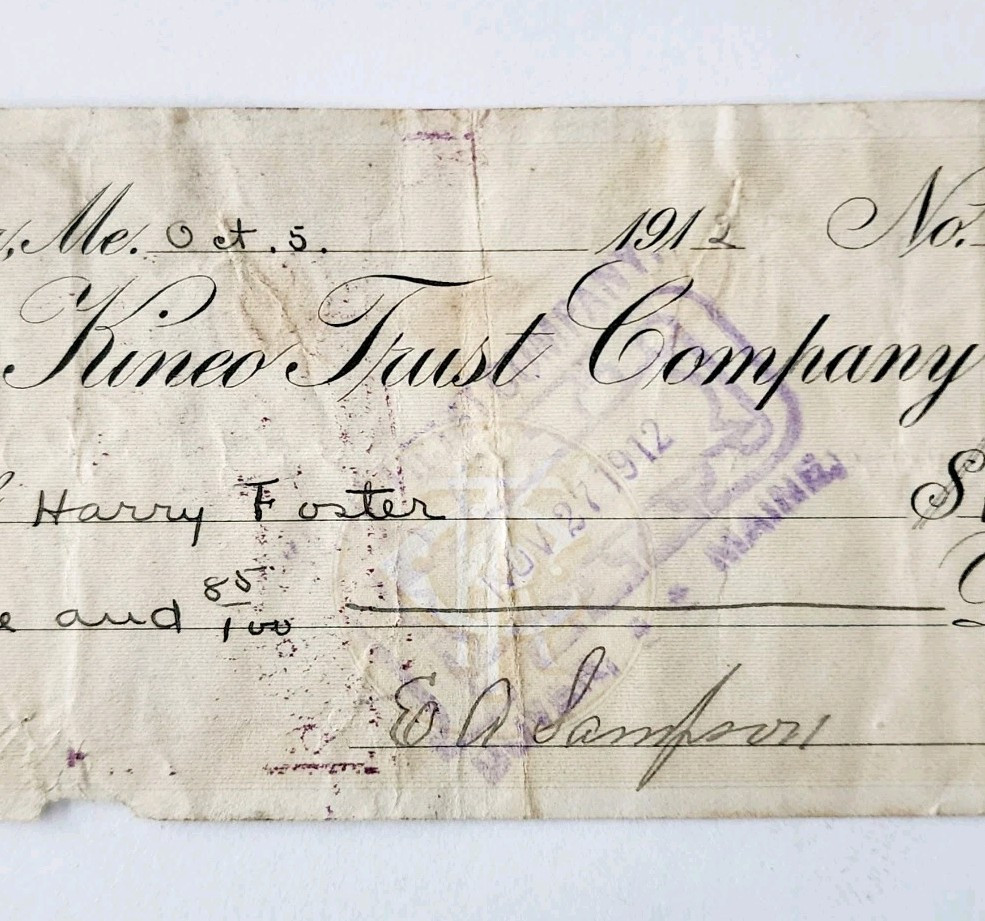 Me. Oct. 5. 1912 No.
Kineo Trust Company
Harry Foster $
and 85/100
E A Sampson
COMPANY
NOV 27 1912
MAINE